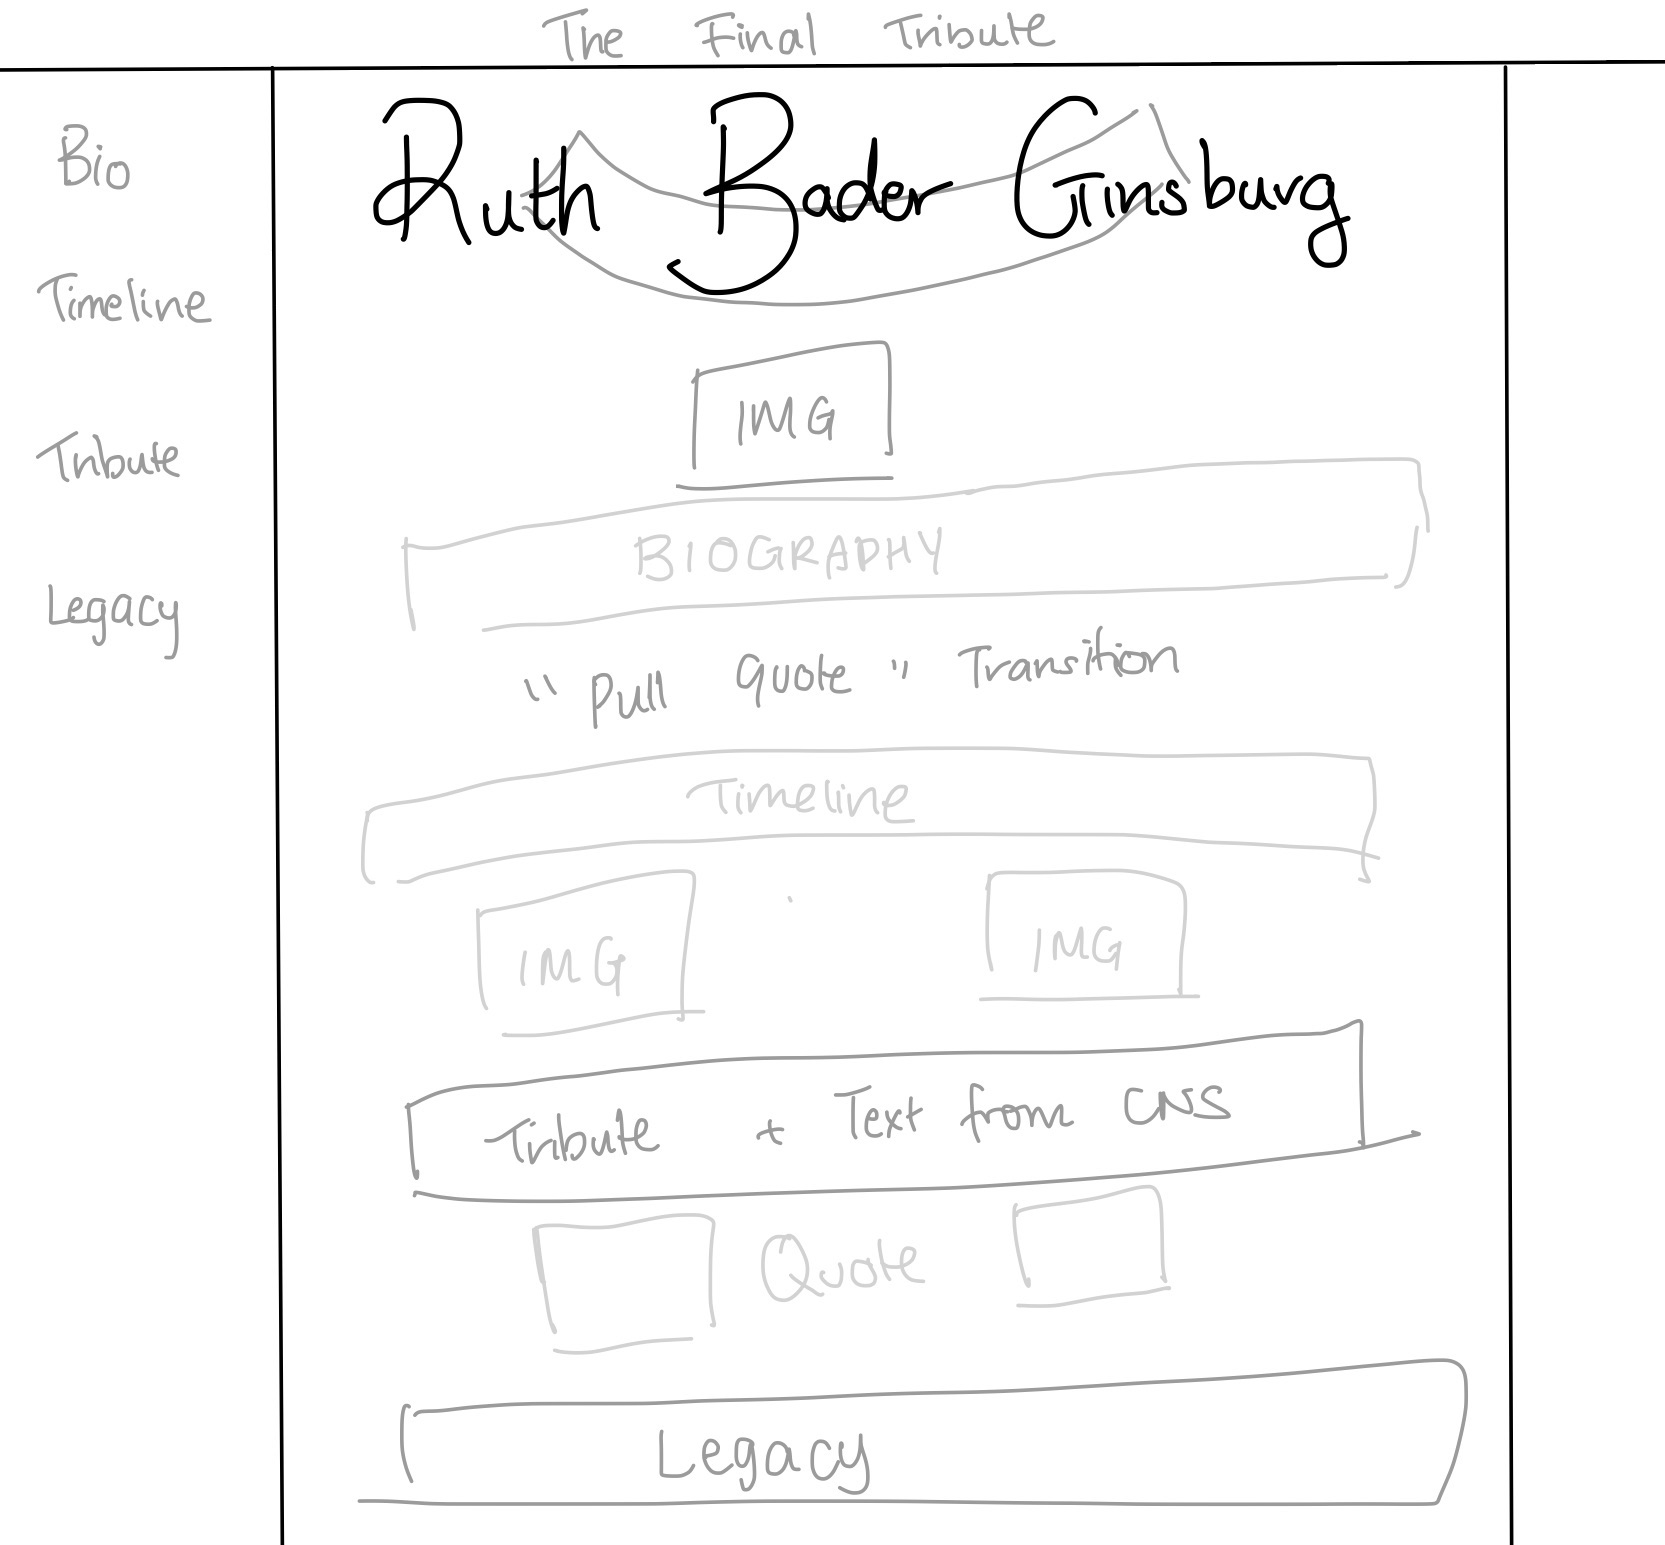 The Final Tribute
Bio
Timeline
Tribute
Legacy
Ruth Bader Ginsburg
IMG
BIOGRAPHY
"Pull Quote" Transition
Timeline
IMG IMG
Tribute + Text from CNS
Quote
Legacy